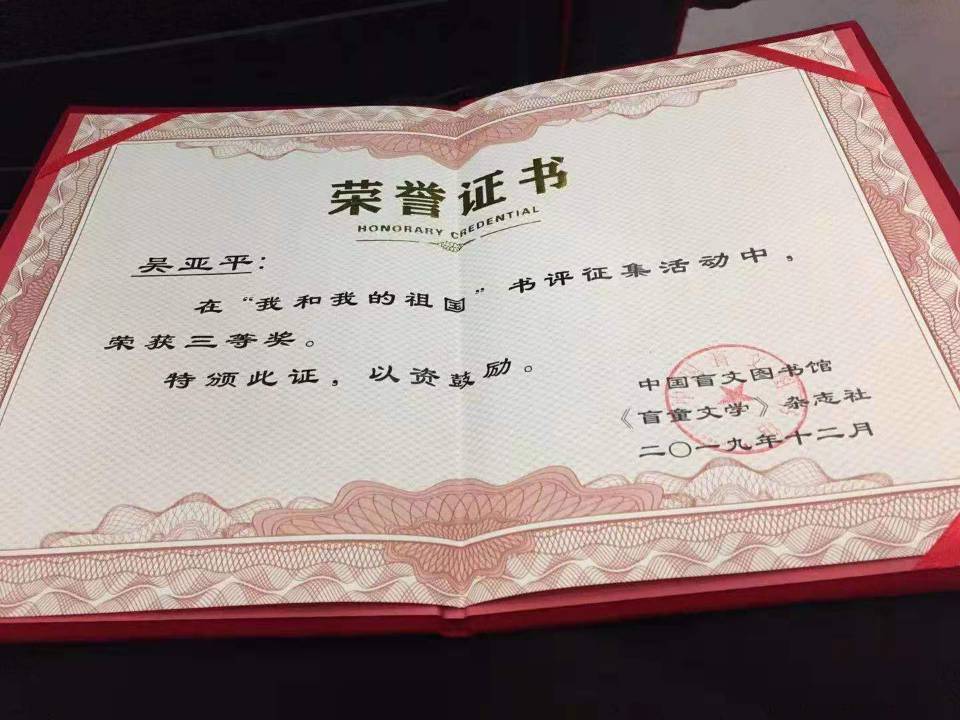 荣誉证书
HONORARY CREDENTIAL
吴亚平：
在“我和我的祖国”书评征集活动中，
荣获三等奖。
特颁此证，以资鼓励。
中国盲文图书馆
《盲童文学》杂志社
二〇一九年十二月